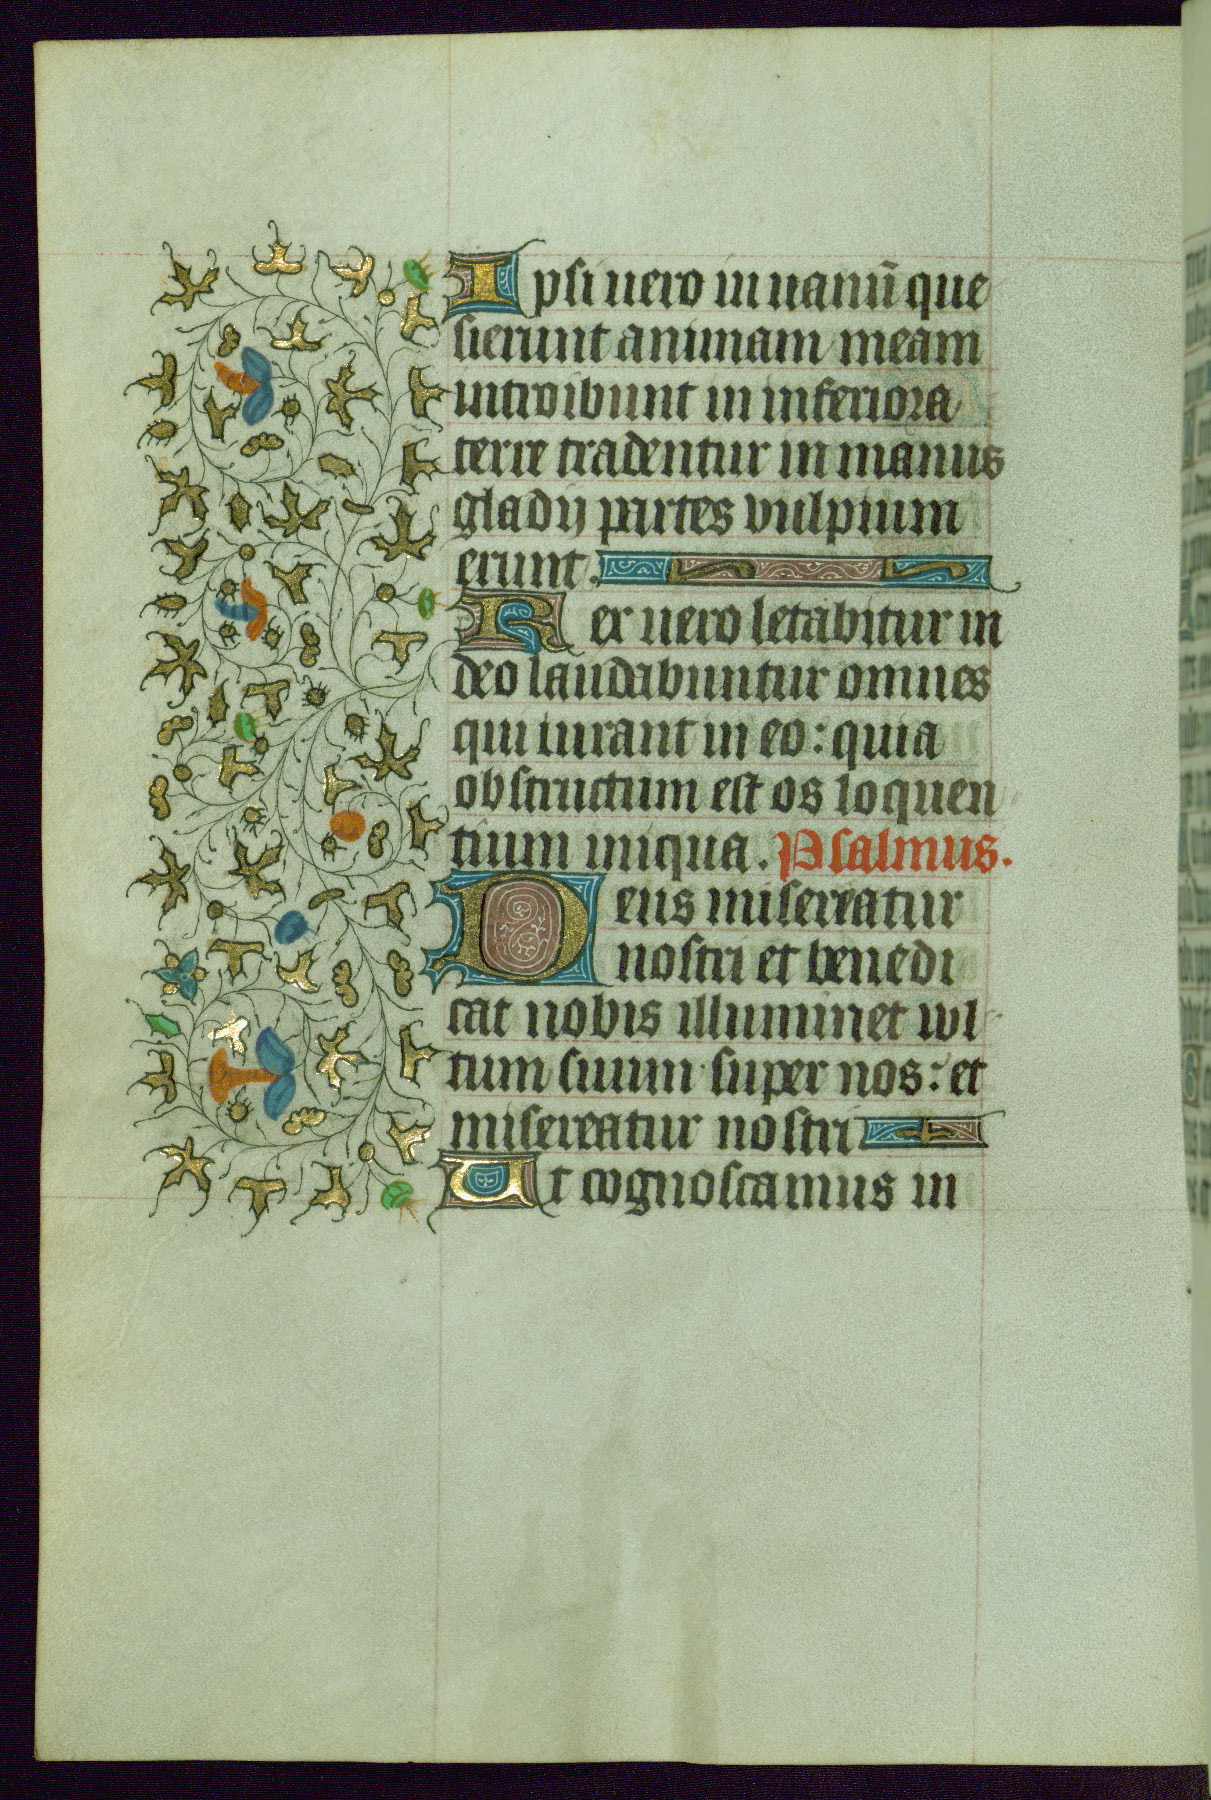 Ipsi uero in uanū que
sierunt animam meam
introibunt in inferiora
terre tradentur in manus
gladij partes vulpium
erunt.
Rex uero letabitur in
deo laudabuntur omnes
qui iurant in eo: quia
obstructum est os loquen
tium iniqua. Psalmus.
Deus misereatur
nostri et benedi
cat nobis illuminet wl
tum suum super nos: et
misereatur nostri
Ut cognoscamus in